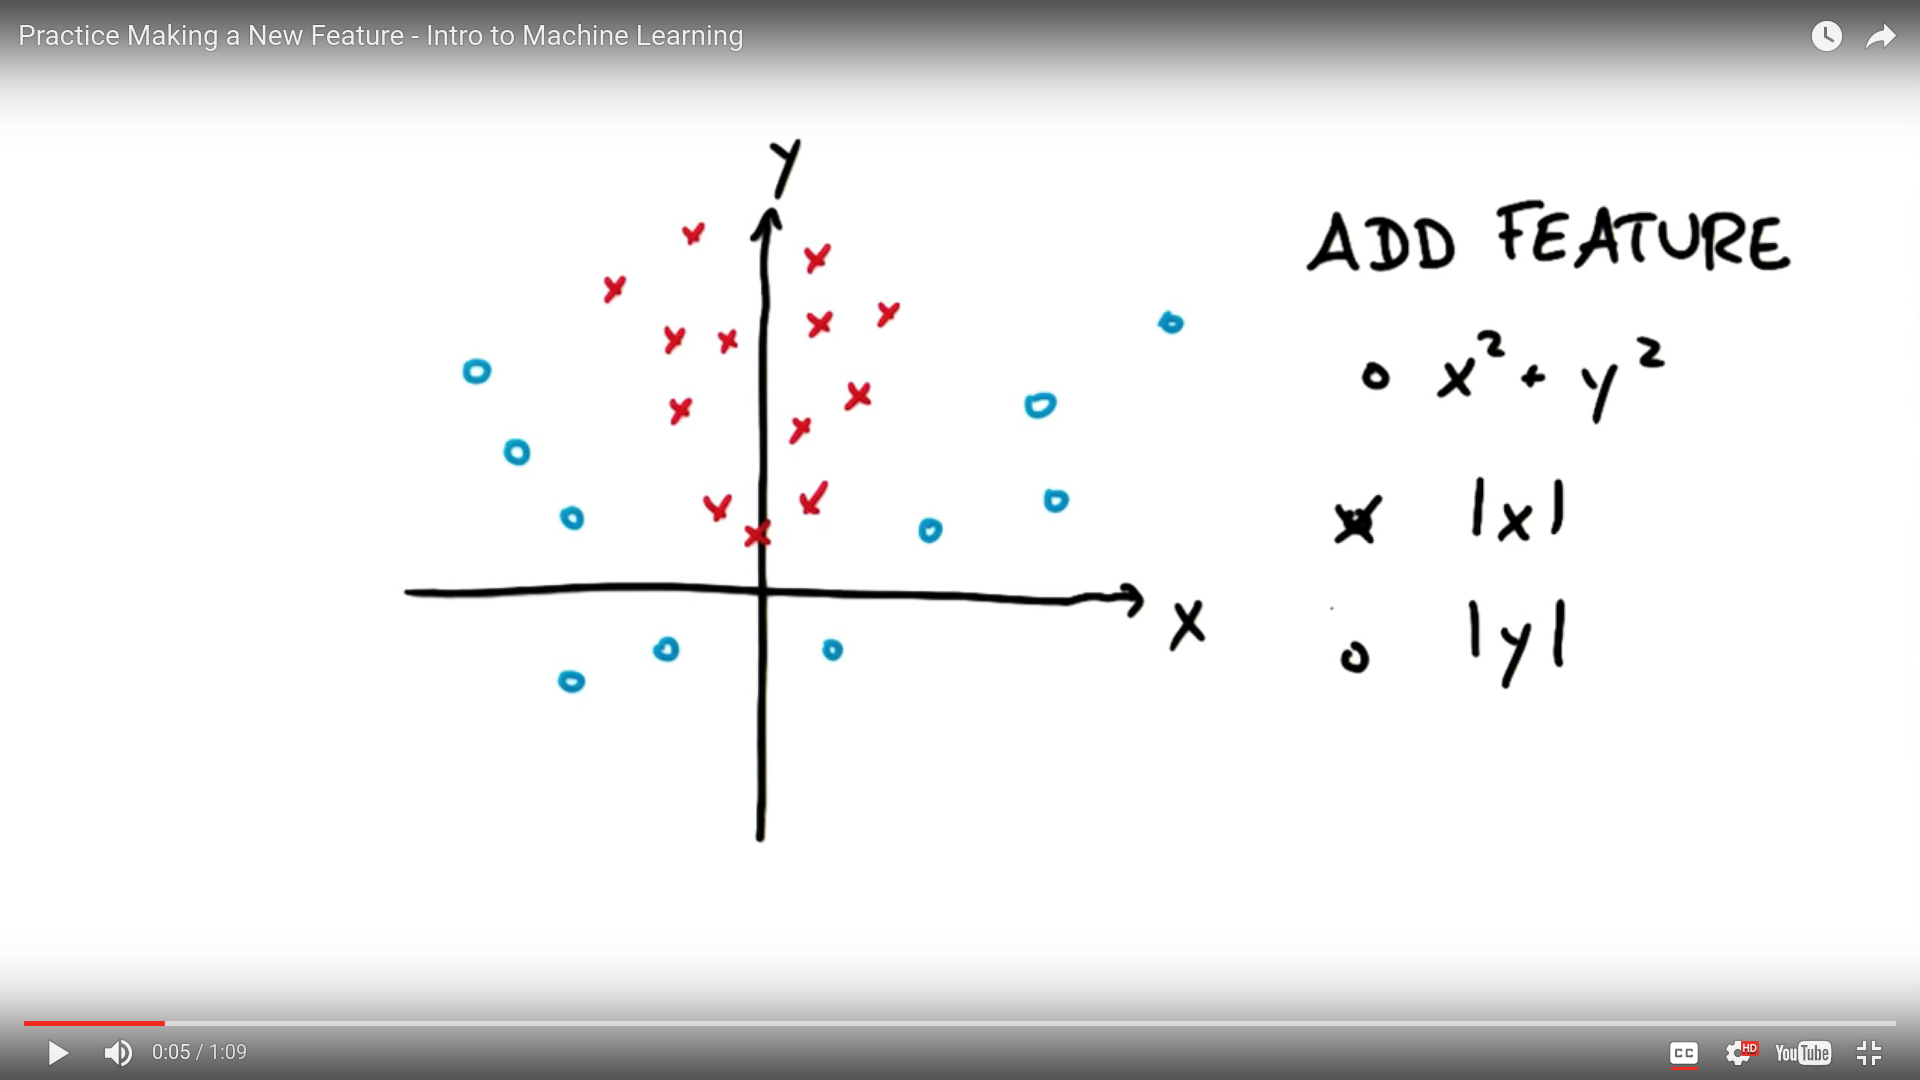 Practice Making a New Feature - Intro to Machine Learning
y
ADD FEATURE
x² + y²
|x|
|y|
X
0:05 / 1:09
CC
HD
YouTube